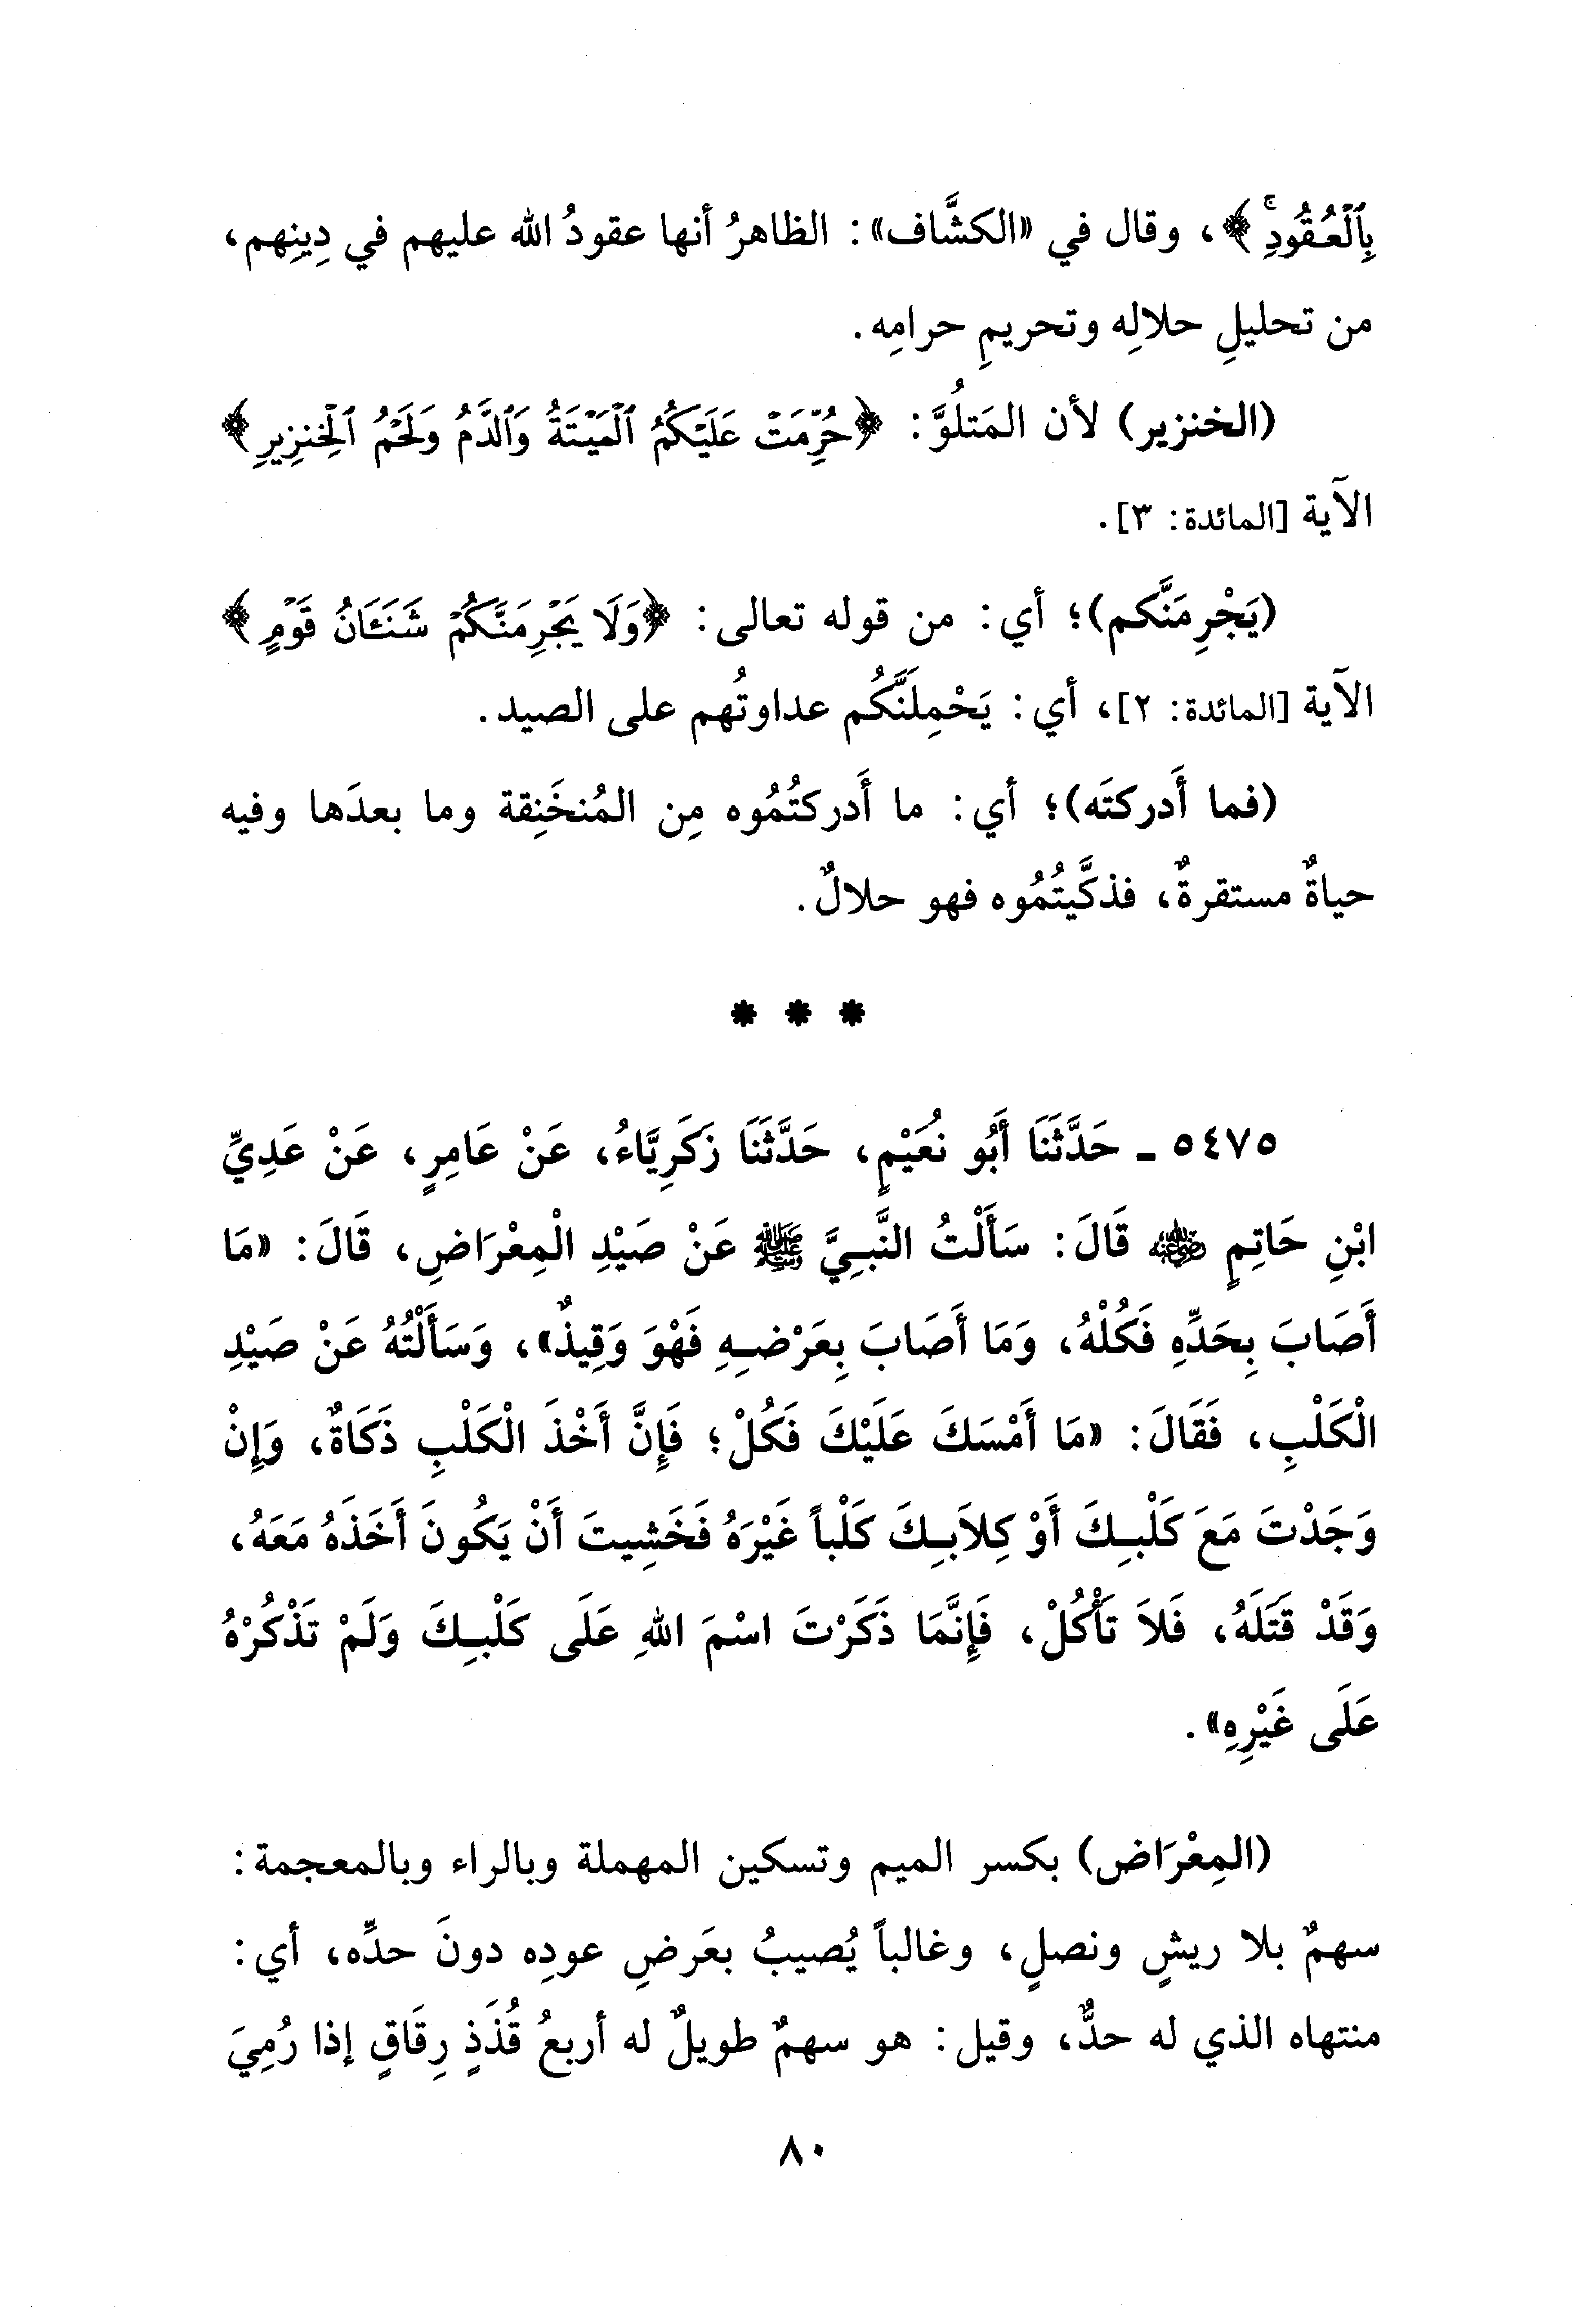 بِٱلْعُقُودِۚ﴾، وقال في «الكشَّاف»: الظاهرُ أنها عقودُ الله عليهم في دِينِهم،
من تحليلِ حلالِه وتحريمِ حرامِه.
(الخنزير) لأن المَتلُوَّ: ﴿حُرِّمَتْ عَلَيْكُمُ ٱلْمَيْتَةُ وَٱلدَّمُ وَلَحْمُ ٱلْخِنزِيرِ﴾
الآية [المائدة: ٣].
(يَجْرِمَنَّكم)؛ أي: من قوله تعالى: ﴿وَلَا يَجْرِمَنَّكُمْ شَنَـَٔانُ قَوْمٍ﴾
الآية [المائدة: ٢]، أي: يَحْمِلَنَّكُم عداوتُهم على الصيد.
(فما أَدركتَه)؛ أي: ما أَدركتُمُوه مِن المُنخَنِقة وما بعدَها وفيه
حياةٌ مستقرةٌ، فذكَّيتُمُوه فهو حلالٌ.
* * *
٥٤٧٥ ـ حَدَّثَنَا أَبُو نُعَيْمٍ، حَدَّثَنَا زَكَرِيَّاءُ، عَنْ عَامِرٍ، عَنْ عَدِيِّ
ابْنِ حَاتِمٍ رضي الله عنه قَالَ: سَأَلْتُ النَّبِيَّ ﷺ عَنْ صَيْدِ الْمِعْرَاضِ، قَالَ: «مَا
أَصَابَ بِحَدِّهِ فَكُلْهُ، وَمَا أَصَابَ بِعَرْضِهِ فَهْوَ وَقِيذٌ»، وَسَأَلْتُهُ عَنْ صَيْدِ
الْكَلْبِ، فَقَالَ: «مَا أَمْسَكَ عَلَيْكَ فَكُلْ؛ فَإِنَّ أَخْذَ الْكَلْبِ ذَكَاةٌ، وَإِنْ
وَجَدْتَ مَعَ كَلْبِكَ أَوْ كِلاَبِكَ كَلْباً غَيْرَهُ فَخَشِيتَ أَنْ يَكُونَ أَخَذَهُ مَعَهُ،
وَقَدْ قَتَلَهُ، فَلاَ تَأْكُلْ، فَإِنَّمَا ذَكَرْتَ اسْمَ اللهِ عَلَى كَلْبِكَ وَلَمْ تَذْكُرْهُ
عَلَى غَيْرِهِ».
(المِعْرَاض) بكسر الميم وتسكين المهملة وبالراء وبالمعجمة:
سهمٌ بلا ريشٍ ونصلٍ، وغالباً يُصيبُ بعَرضِ عودِه دونَ حدِّه، أي:
منتهاه الذي له حدٌّ، وقيل: هو سهمٌ طويلٌ له أربعُ قُذَذٍ رِقَاقٍ إذا رُمِيَ
٨٠